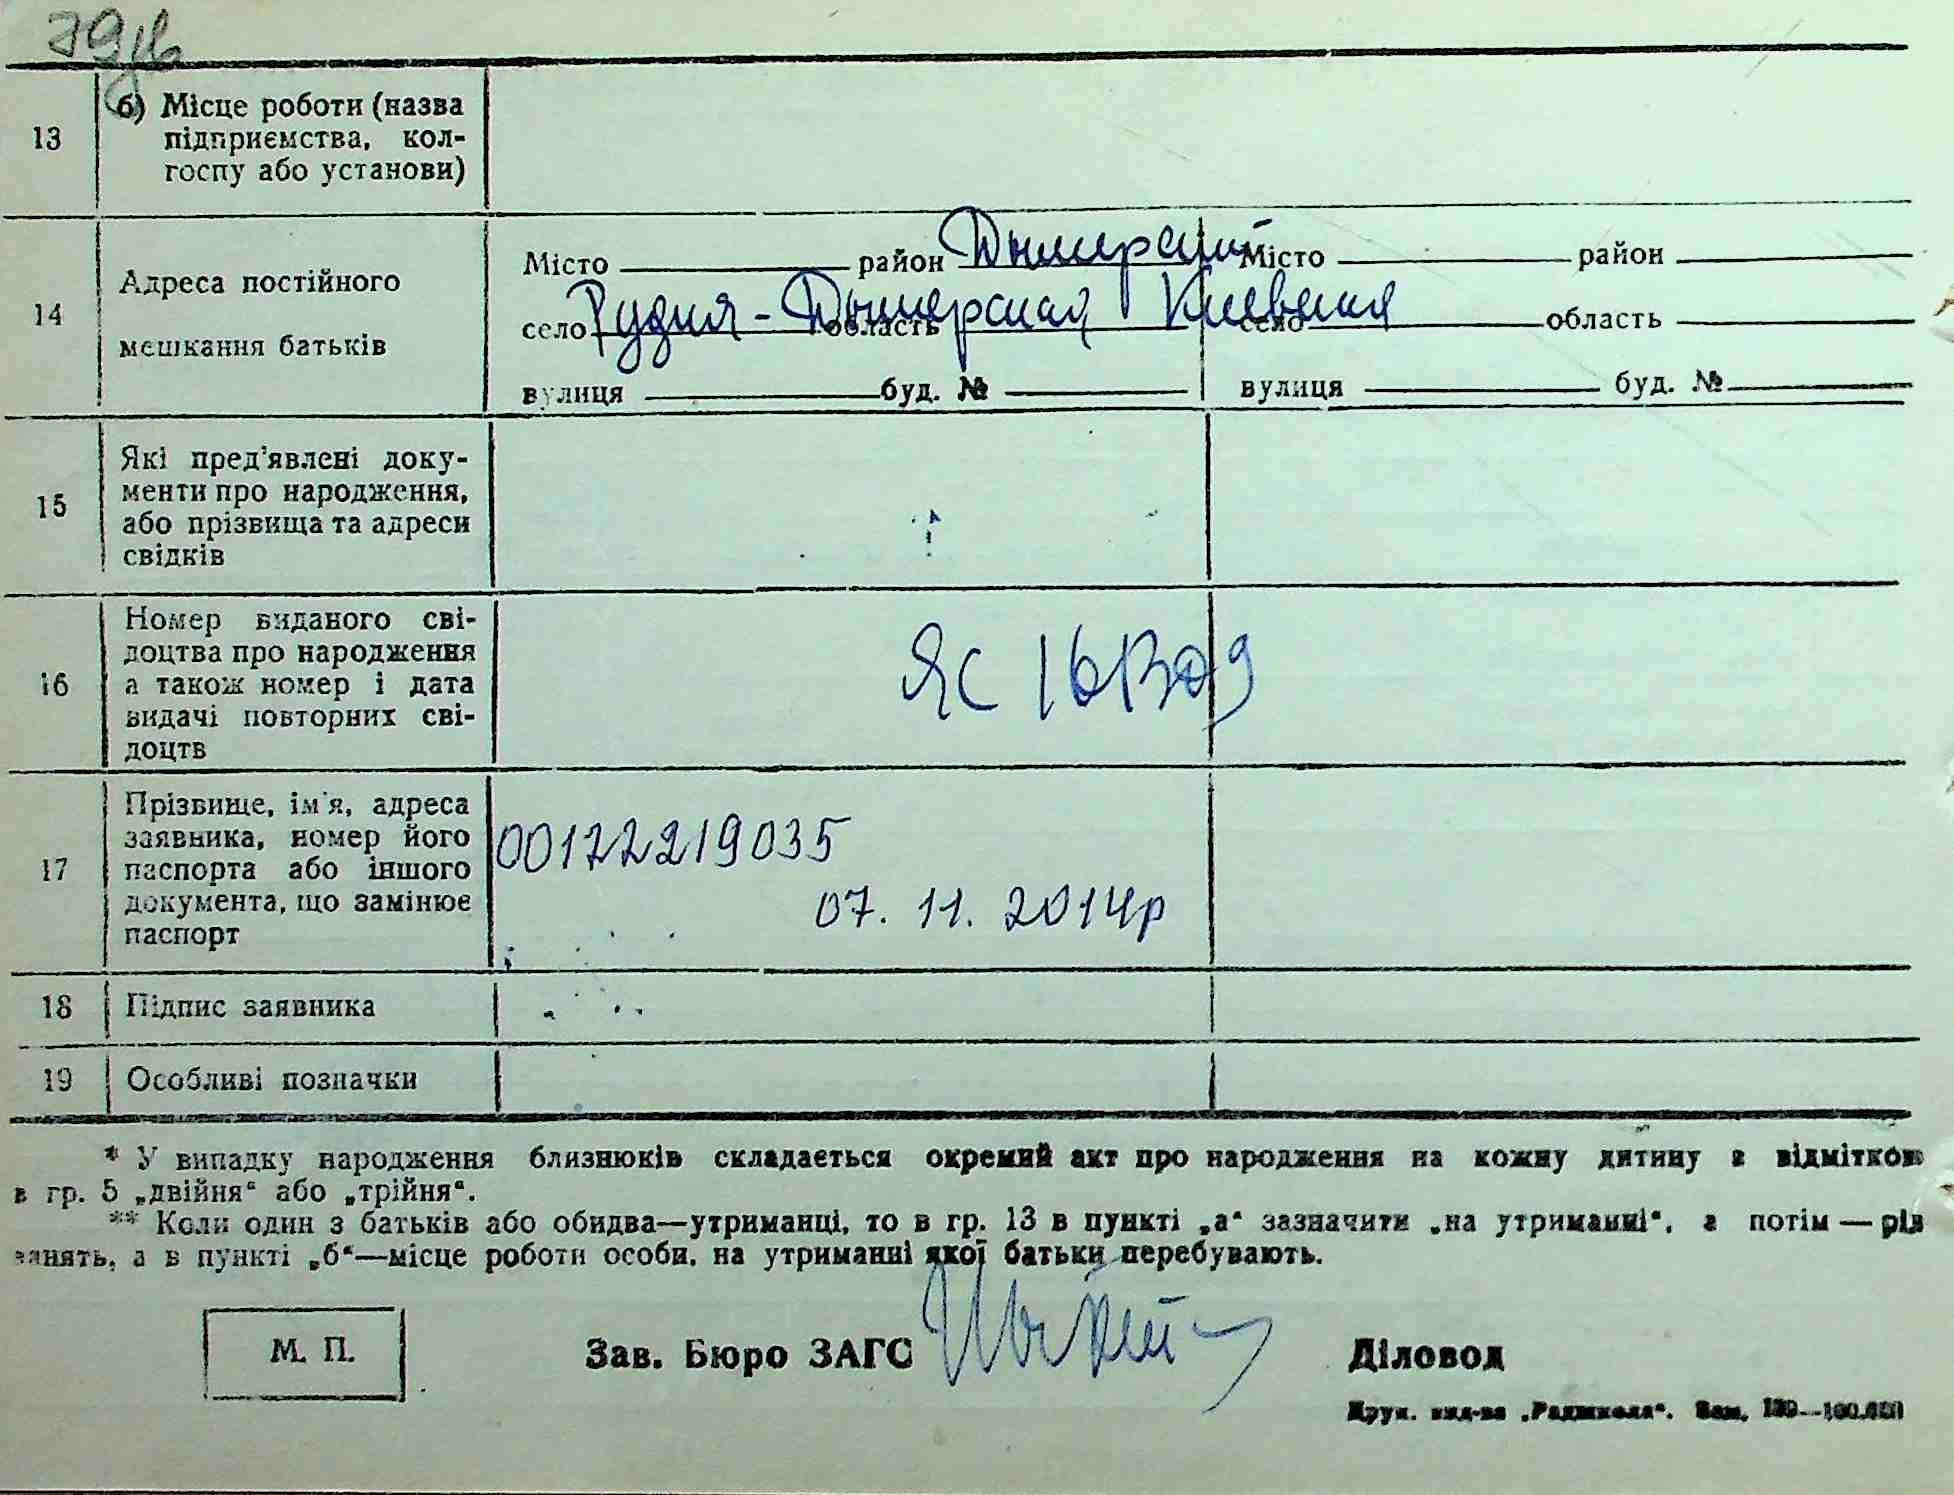 13
б) Місце роботи (назва
підприємства, кол-
госпу або установи)
14
Адреса постійного
мешкання батьків
Місто район Дымерский Місто район
село Рудня-Дымерская область Киевская село область
вулиця буд. № вулиця буд. №
15
Які пред'явлені доку-
менти про народження,
або прізвища та адреси
свідків
16
Номер виданого сві-
доцтва про народження
а також номер і дата
видачі повторних сві-
доцтв
ЯС
17
Прізвище, ім'я, адреса
заявника, номер його
паспорта або іншого
документа, що замінює
паспорт
00122219035
07. 11. 2014р
18 Підпис заявника
19 Особливі позначки
* У випадку народження близнюків складається окремий акт про народження на кожну дитину з відміткою
в гр. 5 „двійня“ або „трійня“.
** Коли один з батьків або обидва—утриманці, то в гр. 13 в пункті „а“ зазначити „на утриманні“, а потім — рід
занять, а в пункті „б“—місце роботи особи, на утриманні якої батьки перебувають.
М. П.
Зав. Бюро ЗАГС
Діловод
Друк. вид-ва „Радшкола“. Зам. 100.000